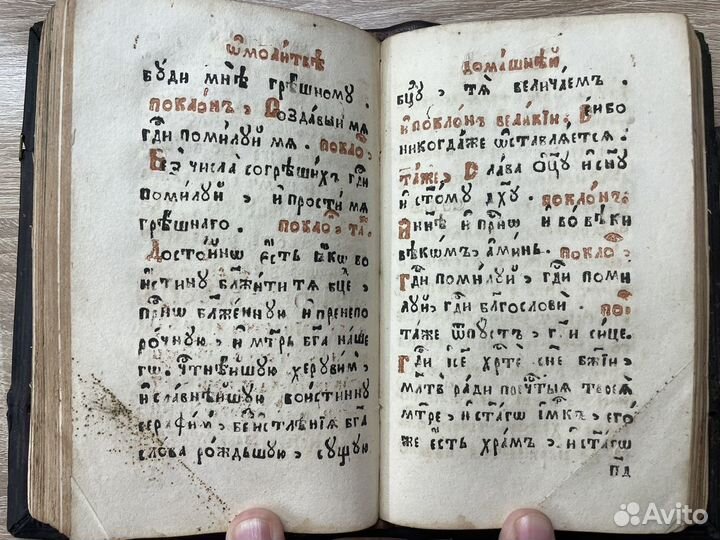 Ѿмоли́твѣ
бꙋди мнѣ̀ грѣ́шномꙋ .
покло́нъ , Созда́выи мѧ
гд҇и поми́лꙋй мѧ . покло ,
Без̾ числа̀ согрѣши́хъ гд҇и
поми́лꙋй , и҆ прости́ мѧ
грѣ́шнаго . покло , та́
Досто́йнѡ є҆сть ꙗ҆́кѡ во
и҆́стинꙋ бл҃жи́ти тѧ бц҃е ,
при́нѡ бл҃же́ннꙋю и҆ пренепо
ро́чнꙋю , и҆ мт҃рь бг҃а наше
гѡ . чт҇нѣ́йшꙋю херꙋви́мъ ,
и҆ сла́внѣйшꙋю вои́стиннꙋ
серафи́мъ , беꙁи҆стлѣ́нїѧ бг҃а
сло́ва ро́ждьшꙋю , сꙋ́щꙋю
дома́шнѣй
бцꙋ , тѧ̀ велича́емъ .
и҆ покло́нъ вели́кїи ,
никогда́же ѿставлѧ́етсѧ .
та́же , Сла́ва ѻ҆ц҃ꙋ и҆ сн҃ꙋ
и҆ ст҃о́мꙋ дх҃ꙋ . покло́нъ .
И҆ ны́нѣ и҆ при́нѡ и҆ во вѣ́ки
вѣкѡ́мъ , а҆ми́нь . покло ,
Гд҇и поми́лꙋй , гд҇и поми
лꙋй , гд҇и бл҃гослови́ . по
та́же ѿпꙋстъ , гл҃и си́це .
Гд҇и і҆с҃е хр҇тѐ сн҃е бж҃їи ,
мл҃твъ ра́ди преч҇тыѧ твоеѧ̀
мт҃ре , и҆ ст҃а́гѡ и҆м҃къ , є҆го́
же є҆́сть хра́мъ , и҆ ст҃а́гѡ
п҃д
Avito